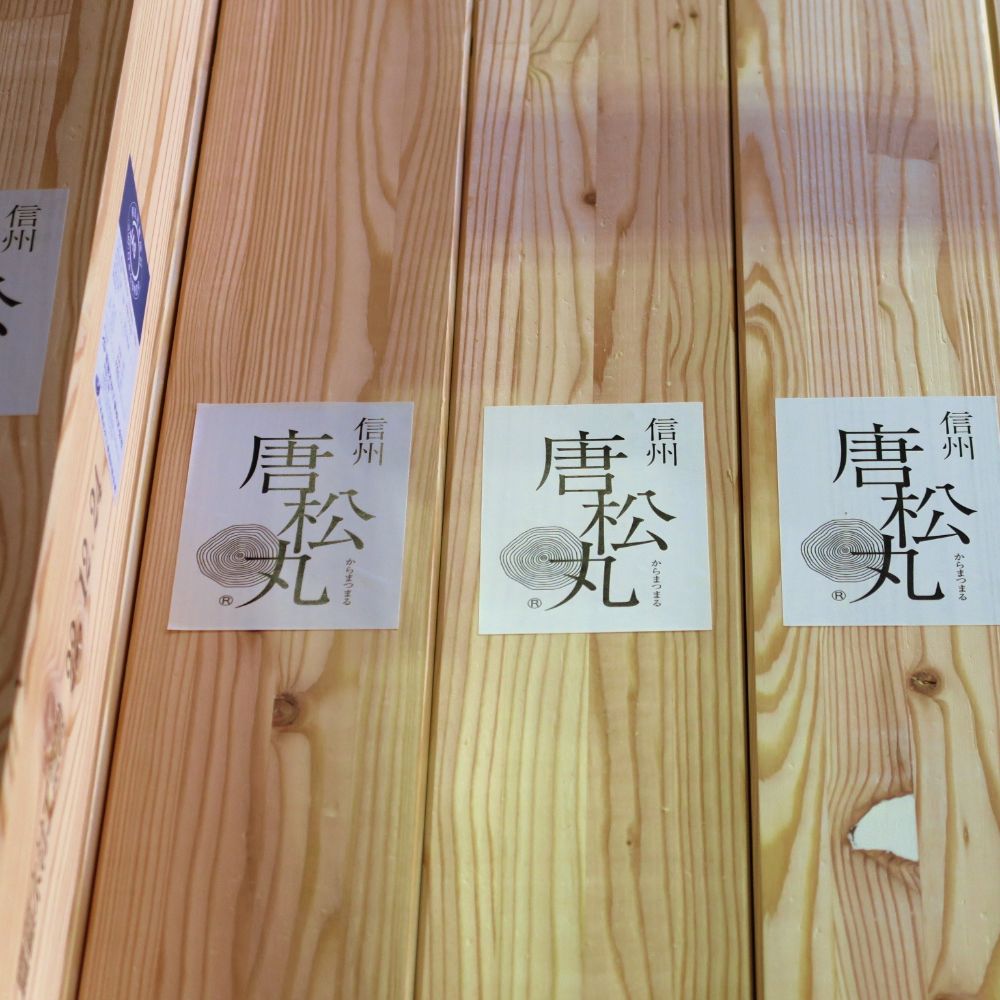 信州
信州
唐松丸
からまつまる
®
信州
唐松丸
からまつまる
®
信州
唐松丸
からまつまる
®